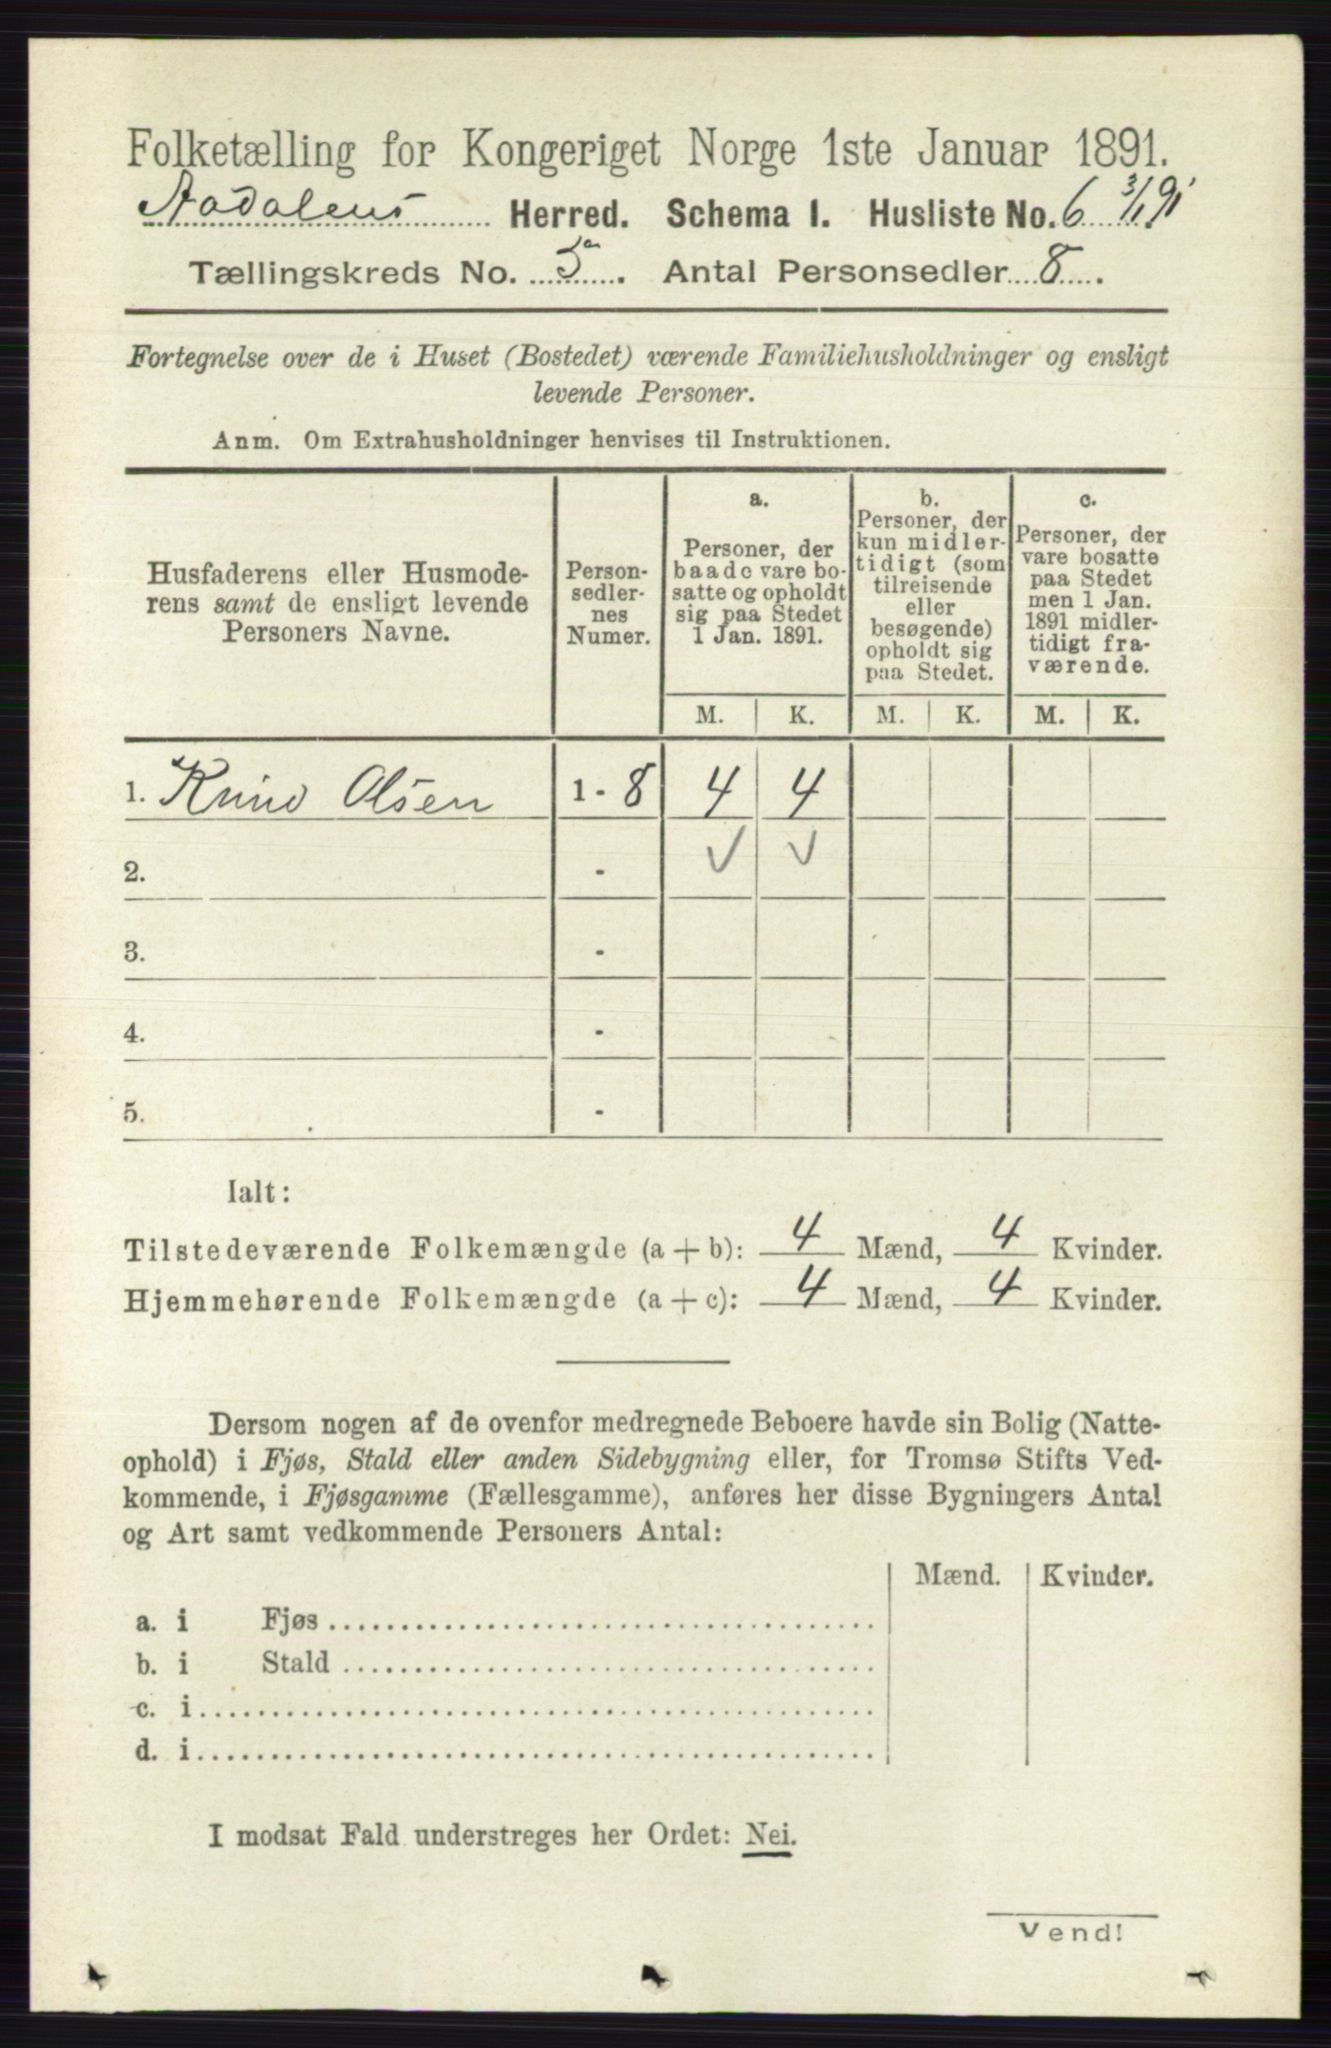 Folketælling for Kongeriget Norge 1ste Januar 1891.
Aadalens Herred. Schema I. Husliste No. 6 3/1 91
Tællingskreds No. 5a. Antal Personsedler 8.
Fortegnelse over de i Huset (Bostedet) værende Familiehusholdninger og ensligt
levende Personer.
Anm. Om Extrahusholdninger henvises til Instruktionen.
Husfaderens eller Husmode-
rens samt de ensligt levende
Personers Navne.
Person-
sedler-
nes
Numer.
a.
Personer, der
baade vare bo-
satte og opholdt
sig paa Stedet
1 Jan. 1891.
b.
Personer, der
kun midler-
tidigt (som
tilreisende
eller
besøgende)
opholdt sig
paa Stedet.
c.
Personer, der
vare bosatte
paa Stedet
men 1 Jan.
1891 midler-
tidigt fra-
værende.
M. K. M. K. M. K.
1. Knud Olsen 1 - 8 4 4
2. -
3. -
4. -
5. -
Ialt:
Tilstedeværende Folkemængde (a + b): 4 Mænd, 4 Kvinder.
Hjemmehørende Folkemængde (a + c): 4 Mænd, 4 Kvinder.
Dersom nogen af de ovenfor medregnede Beboere havde sin Bolig (Natte-
ophold) i Fjøs, Stald eller anden Sidebygning eller, for Tromsø Stifts Ved-
kommende, i Fjøsgamme (Fællesgamme), anføres her disse Bygningers Antal
og Art samt vedkommende Personers Antal:
Mænd. Kvinder.
a. i Fjøs
b. i Stald
c. i
d. i
I modsat Fald understreges her Ordet: Nei.
Vend!